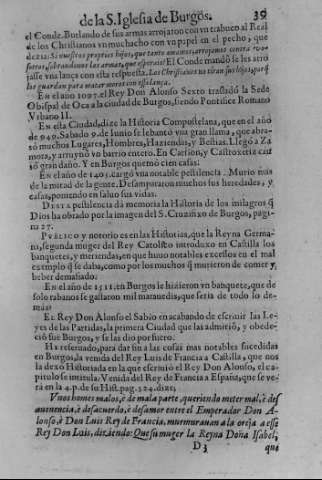 de la S. Iglesia de Burgos. 39
el Conde. Burlando de sus armas arrojaron con vn trabuco al Real
de los Christianos vn muchacho con vn papel en el pecho, que
dezia: Si nuestros proprios hijos, que tanto amamos, arrojamos contra vo-
sotros, sobrandonos las armas, que esperais? El Conde mandò se les arro
jasse vna lança con esta respuesta. Los Christianos no tiran sus hijos,
los guardan para meter moros con essa lança.
En el año 1097. el Rey Don Alonso Sexto trasladò la Sede
Obispal de Oca a la ciudad de Burgos, siendo Pontifice Romano
Vrbano II.
EN esta Ciudad, dize la Historia Compostelana, que en el año
de 949. Sabado 9. de Iunio se lebantò vna gran llama, que abra-
sò muchos Lugares, Hombres, Haziendas, y Bestias. Llegò a Za
mora, y arruynò vn barrio entero. En Carrion, y Castroxeriz cau
sò gran daño. Y en Burgos quemò cien casas.
EN el año de 1405. cargò vna notable pestilencia. Murio mas
de la mitad de la gente. Desampararon muchos sus heredades, y
casas, poniendo en saluo sus vidas.
DESTA pestilencia dà memoria la Historia de los milagros q̃
Dios ha obrado por la imagen del S. Cruzifixo de Burgos, pagi-
na 27.
PVBLICO y notorio es en las Historias, que la Reyna Germa-
na, segunda muger del Rey Catolico introduxo en Castilla los
banquetes, y meriendas, en que huuo notables excessos en el mal
exemplo q̃ se daba, como por los muchos q̃ murieron de comer y
beber demasiado.
EN el año de 1511. en Burgos se hizieron vn banquete, que de
solo rabanos se gastaron mil marauedis, que seria de todo lo de-
màs?
EL Rey Don Alonso el Sabio en acabando de escriuir las Le-
yes de las Partidas, la primera Ciudad que las admitiò, y obede-
ciò fue Burgos, y se las dio por fuero.
HE reseruado, para dar fin a las cosas mas notables sucedidas
en Burgos, la venida del Rey Luis de Francia a Castilla, que nos
la dexò Historiada en la que escriuiò el Rey Don Alonso, el ca-
pitulo se intitula. Venida del Rey de Francia a España, que se ve-
ra en la 4. p. de su Hist. pag. 324. dize,
Vnos homes malos, è de mala parte, queriendo meter mal, è des
auenencia, è desacuerdo, è desamor entre el Emperador Don A-
lonso, è Don Luis Rey de Francia, murmurauan a la oreja a esse
Rey Don Luis, diziendo: Que su muger la Reyna Doña Isabel,
D 3 que